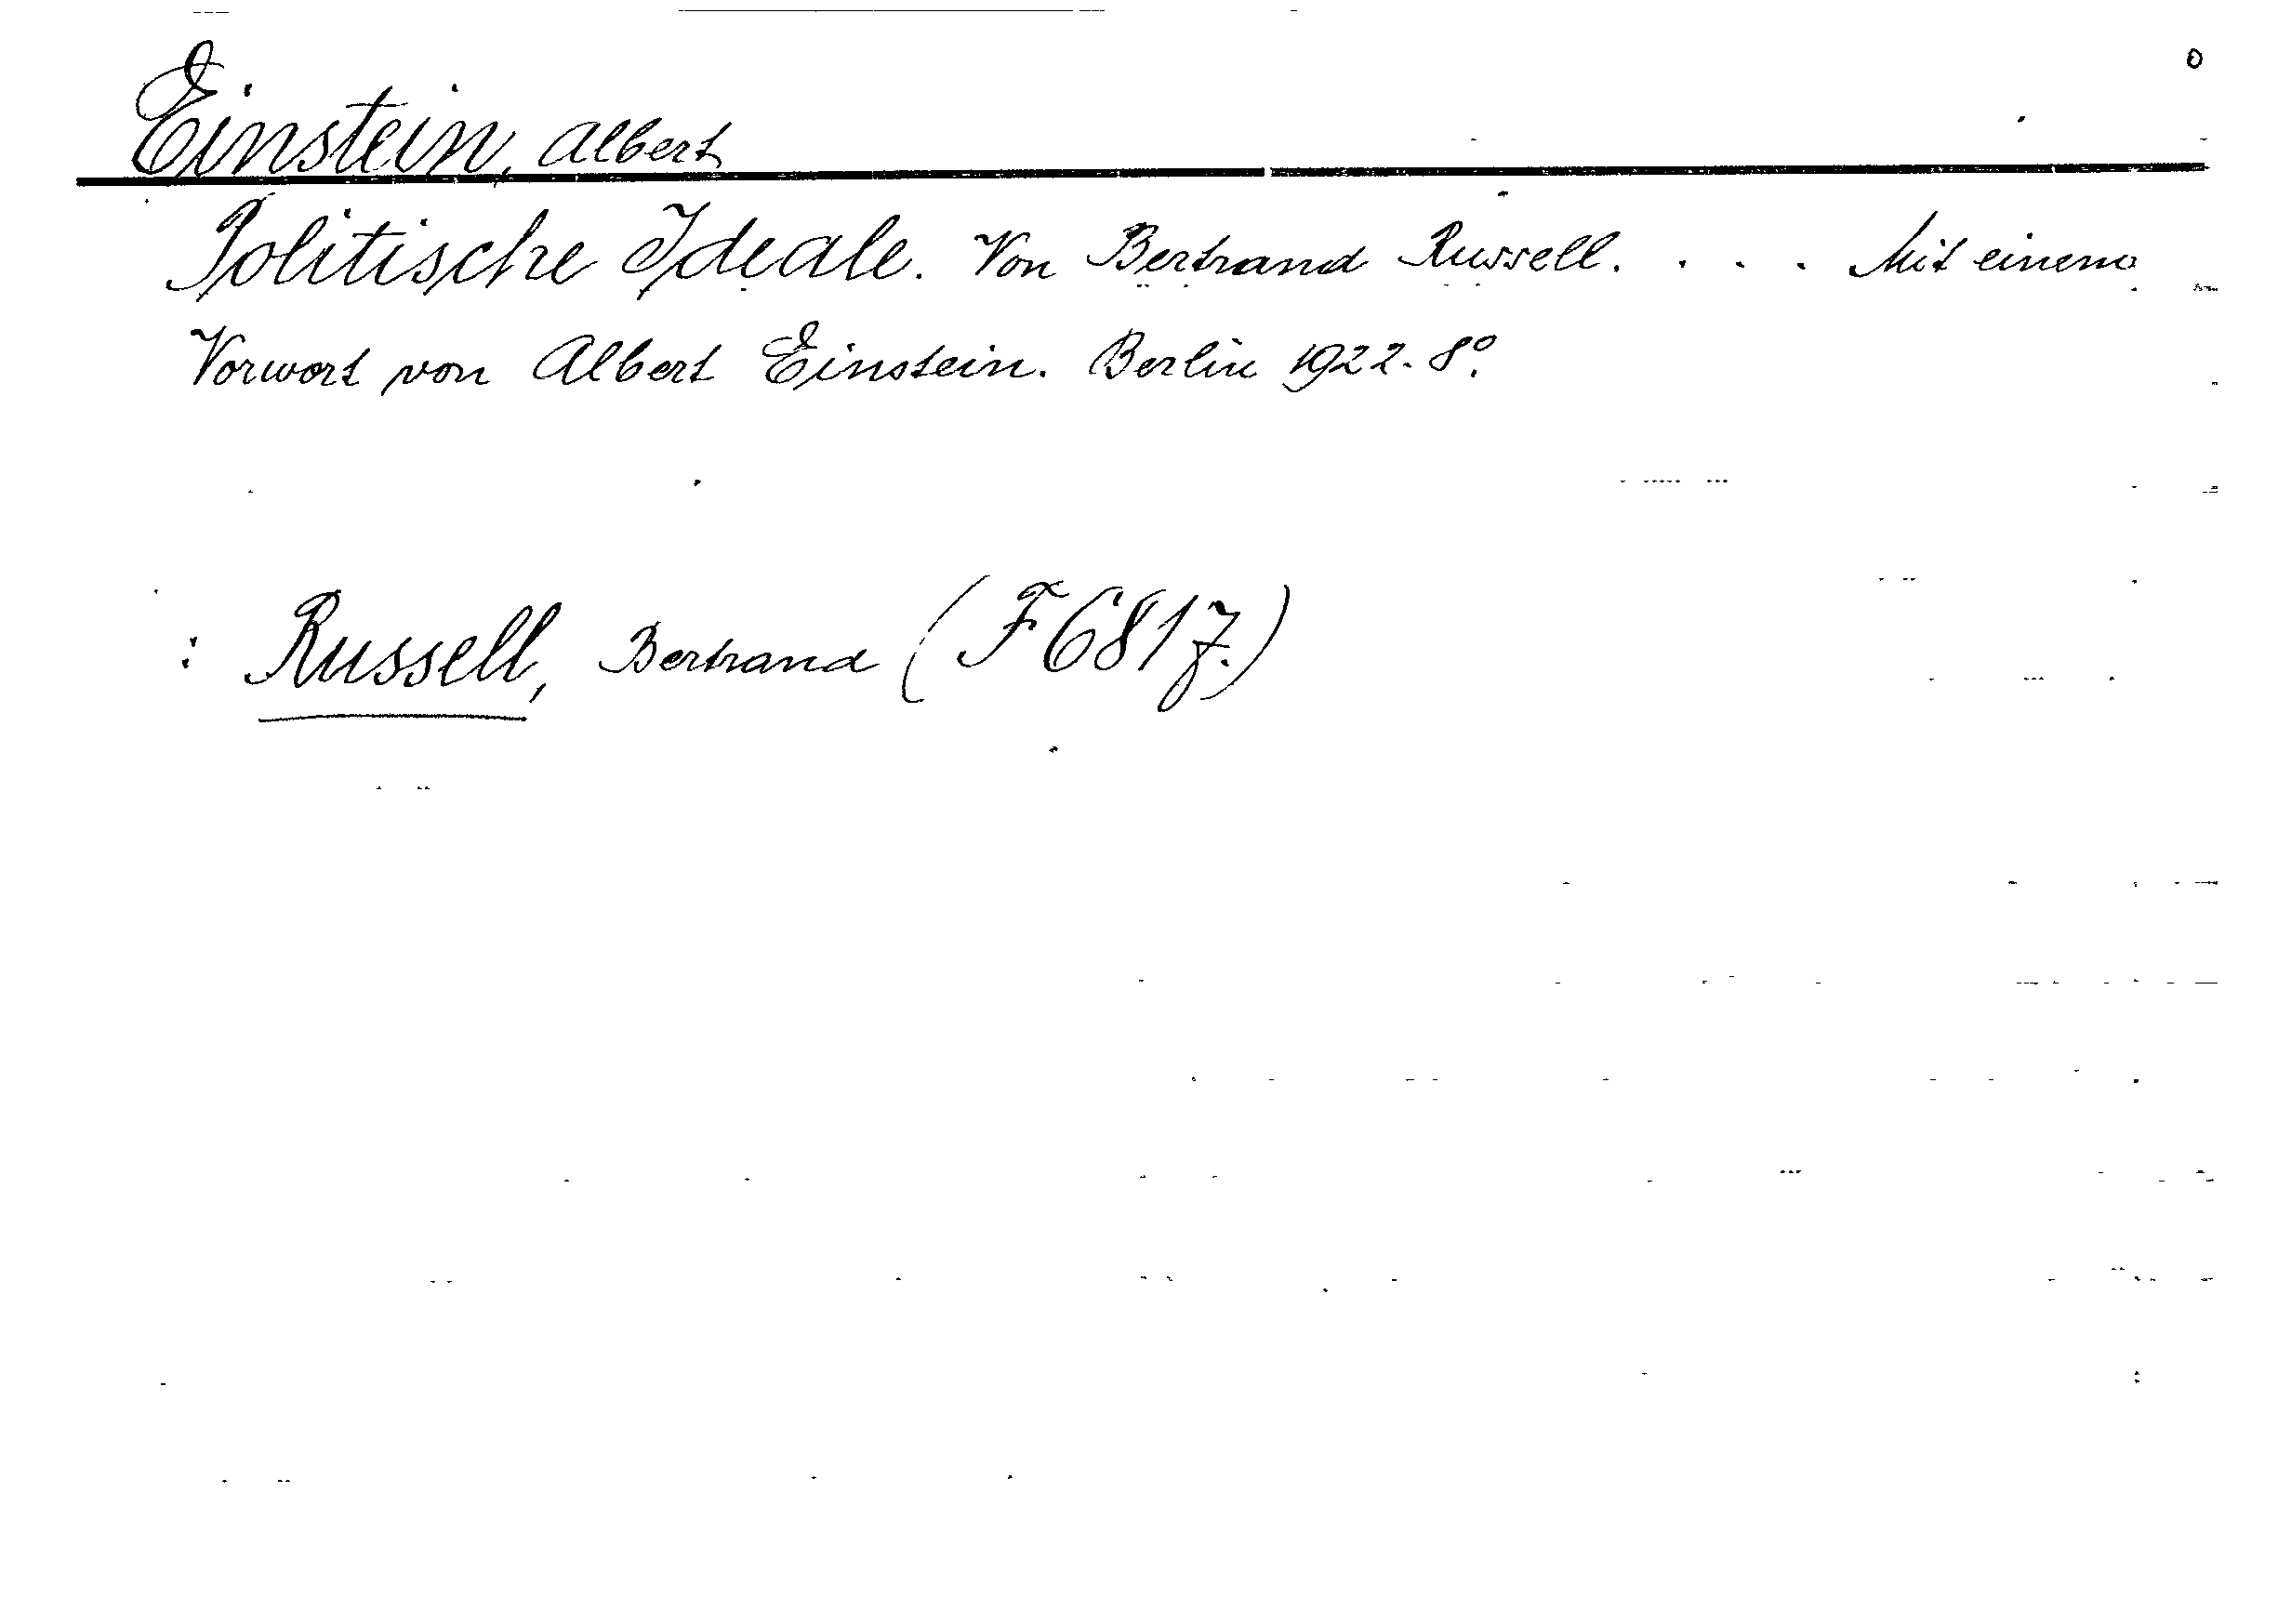 Einstein, Albert
Politische Ideale. Von Bertrand Russell. . . . Mit einem
Vorwort von Albert Einstein. Berlin 1922. 8°.
: Russell, Bertrand (F6817.)